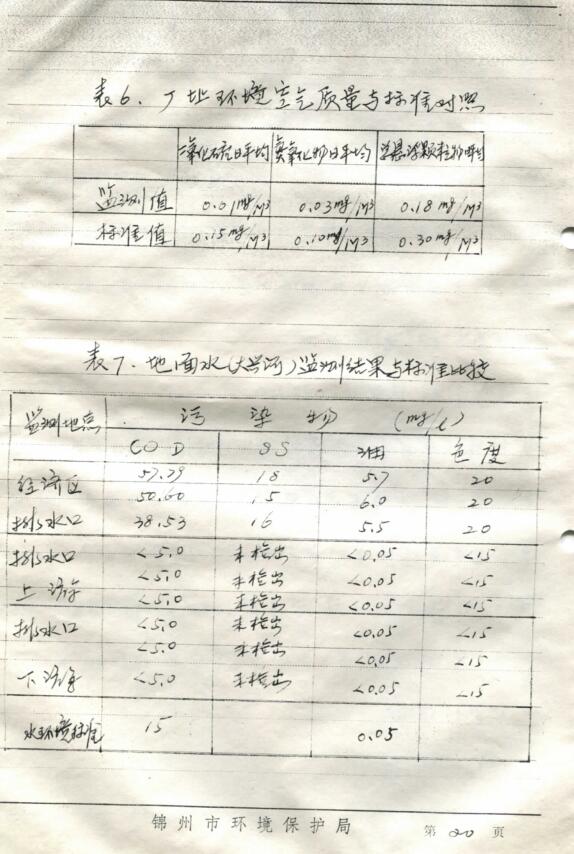 表6. 厂址环境空气质量与标准对照
二氧化硫日平均 氮氧化物日平均 总悬浮颗粒物日平均
监测值 0.01mg/M³ 0.03mg/M³ 0.18mg/M³
标准值 0.15mg/M³ 0.10mg/M³ 0.30mg/M³
表7. 地面水(大兴河)监测结果与标准比较
监测地点 污染物 (mg/l)
COD SS 油 色度
57.79 18 5.7 20
经济区
50.60 15 6.0 20
排水口 38.53 16 5.5 20
排水口 <5.0 未检出 <0.05 <15
<5.0 未检出 <0.05 <15
上游 <5.0 未检出 <0.05 <15
排水口 <5.0 未检出 <0.05 <15
<5.0 未检出 <0.05 <15
下游 <5.0 未检出 <0.05 <15
水环境标准 15 0.05
锦州市环境保护局 第20页